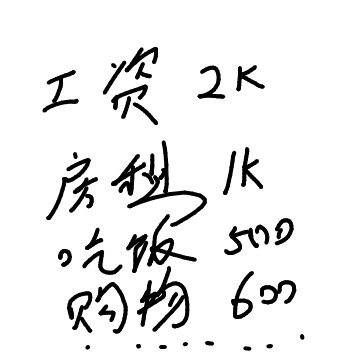 工资 2K
房租 1K
吃饭 500
购物 600
......